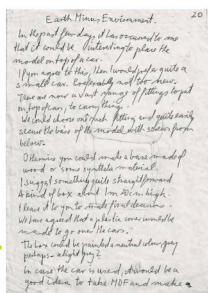 20
Earth Minus Environment.
In the past few days it has occurred to me
that it could be interesting to place the
model on top of a car.
If you agree to this, then I would prefer quite a
small car. Preferably not too new.
There are now a vast range of fittings to put
on top of cars, to carry things.
We could choose one such fitting and quite easily
secure the base of the model with screws from
below.
Otherwise you could make a base made of
wood or some synthetic material.
I suggest something quite straightforward
A kind of box about 1m 20cm high.
I leave it to you to make final decisions.
We have agreed that a plastic cover would be
made to go over the cars.
The box could be painted a neutral colour, grey
perhaps - a light grey?
In case the car is used, it would be a
good idea to take MDF and make a